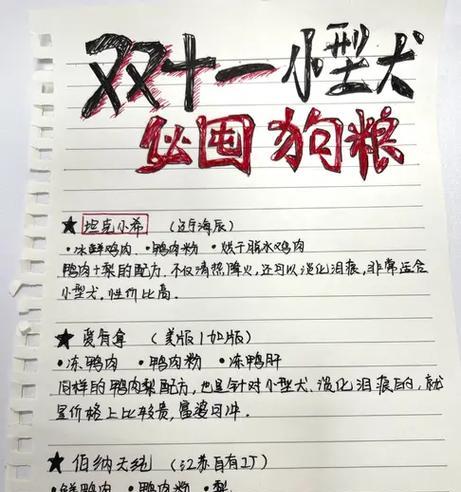 双十一小型犬
必囤狗粮
★ 坦克小希 (辽宁海辰)
·冰鲜鸡肉 ·鸭肉粉 ·烘干脱水鸡肉
鸭肉+梨的配方,不仅清热降火,还可以淡化泪痕,非常适合
小型犬,性价比高.
★ 爱肯拿 (美版/加版)
·冻鸭肉 ·鸭肉粉 ·冻鸭肝
同样的鸭肉梨配方,也是针对小型犬、淡化泪痕的,就
是价格上比较贵,富婆可冲.
★ 伯纳天纯 (江苏自有工厂)
·鲜鸭肉 ·鸭肉粉 ·梨